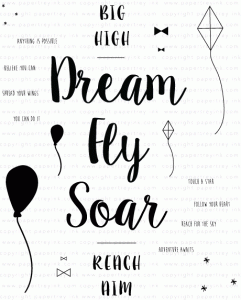 BIG
HIGH
ANYTHING IS POSSIBLE
BELIEVE YOU CAN
SPREAD YOUR WINGS
YOU CAN DO IT
Dream
Fly
Soar
TOUCH A STAR
FOLLOW YOUR HEART
REACH FOR THE SKY
ADVENTURE AWAITS
REACH
AIM